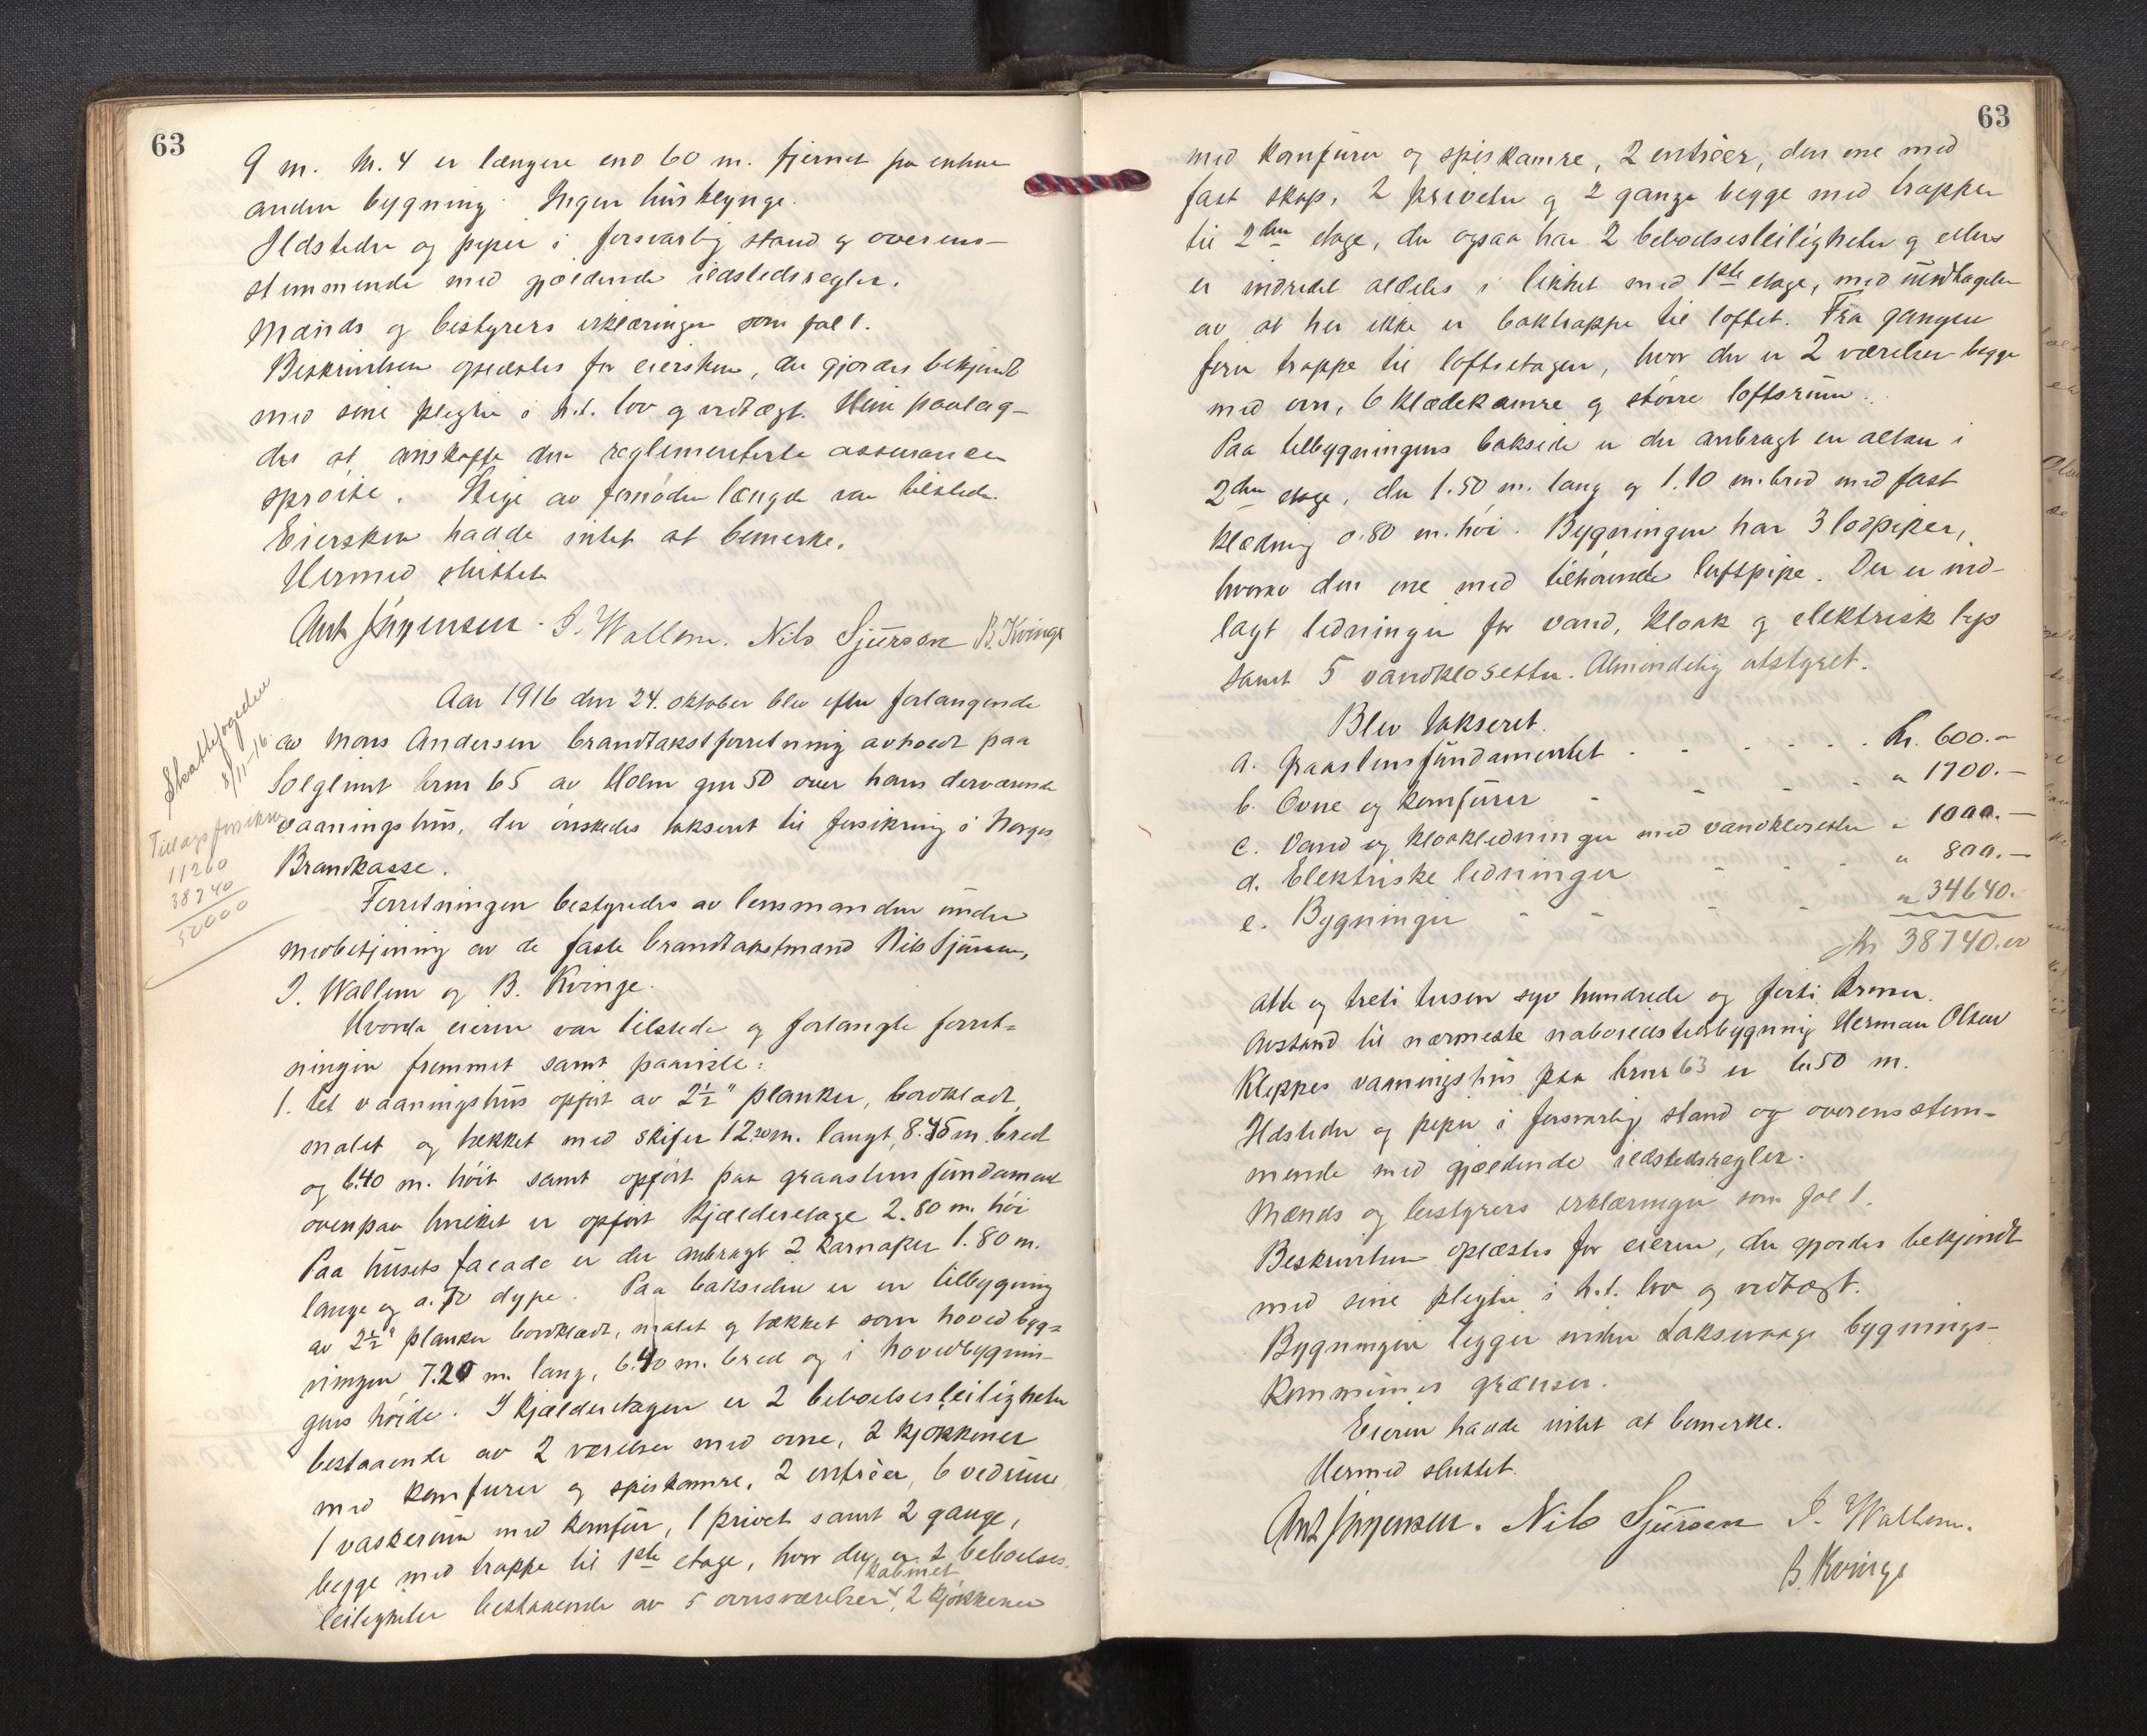 63
9 m. M. 4 er længere end 60 m. fjernet fra enhver
anden bygning. Ingen husklynge.
Ildsteder og piper i forsvarlig stand og overens-
stemmende med gjældende ildstedsregler.
Mænds og bestyrers erklæringer som fol 1.
Beskrivelsen oplæstes for eiersken, der gjordes bekjendt
med sine pligter i h.t. lov og vedtægt. Hun paalag-
des at anskaffe den reglementerte assurance
sprøite. Stige av fornøden længde var tilstede.
Eiersken hadde intet at bemerke.
Hermed sluttet
Ant Jørgensen. I. Wallem. Nils Sjursen B. Kvinge
Aar 1916 den 24. oktober blev efter forlangende
av Mons Andersen brandtakstforretning avholdt paa
Solglimt brnr 65 av Holen gnr 50 over hans derværende
vaaningshus, der ønskedes takseret til forsikring i Norges
Brandkasse.
Skattefogeden
8/11-16.
Tillægsforsikr
11260
38740
50000
Forretningen bestyredes av lensmanden under
medbetjening av de faste brandtakstmænd Nils Sjursen,
I. Wallem og B. Kvinge.
Hvorda eieren var tilstede og forlangte forret-
ningen fremmet samt paaviste:
1. Et vaaningshus opført av 2½" planker, bordklædt,
malet og tækket med skifer 12.20 m. langt, 8.45 m. bred
og 6.40 m. høit samt opført paa graastensfundament
ovenpaa hvilket er opført kjælderetage 2.80 m. høi
Paa husets facade er der anbragt 2 karnaper 1.80 m.
lange og 0.70 dype. Paa baksiden er en tilbygning
av 2½" planker bordklædt, malet og tækket som hovedbyg-
ningen 7.20 m. lang, 6.40 m. bred og i hovedbygnin-
gens høide. I kjælderetagen er 2 beboelsesleiligheter
bestaaende av 2 værelser med ovne, 2 kjøkkener
med komfurer og spiskamre, 2 entréer, 6 vedrum
1 vaskerum med komfur, 1 privet samt 2 gange,
begge med trappe til 1ste etage, hvor der er 2 beboelses
kabinet
leiligheter bestaaende av 5 ovnsværelser, 2 kjøkkener
63
med komfurer og spiskamre, 2 entréer, den ene med
fast skap, 2 priveter og 2 gange begge med trapper
til 2den etage, der ogsaa har 2 beboelsesleiligheter og ellers
er indredet aldeles i likhet med 1ste etage, med undtagelse
av at her ikke er baktrappe til loftet. Fra gangen
fører trappe til loftsetagen, hvor der er 2 værelser begge
med ovn, 6 klædekamre og større loftsrum.
Paa tilbygningens bakside er der anbragt en altan i
2den etage, der 1.50 m. lang og 1.10 m. bred med fast
klædning 0.80 m. høi. Bygningen har 3 lodpiper,
hvorav den ene med tilhørende luftpipe. Der er ind-
lagt ledninger for vand, kloak og elektrisk lys
samt 5 vandklosetter. Almindelig utstyret.
Blev takseret.
a. Graastensfundamentet . . . . . . kr. 600.-
b. Ovne og komfurer - - - - " 1700.-
c. Vand og kloakledninger med vandklosetter " 1000.-
d. Elektriske ledninger - - - " 800.-
e. Bygningen - - - - " 34640.-
Kr 38740.00
otte og treti tusen syv hundrede og førti kroner.
Avstand til nærmeste naboildstedsbygning Herman Olsen
Kleppes vaaningshus paa brnr 63 er 6.50 m.
Ildsteder og piper i forsvarlig stand og overensstem-
mende med gjældende ildstedsregler.
Mænds og bestyrers erklæringer som fol 1.
Beskrivelsen oplæstes for eieren, der gjordes bekjendt
med sine pligter i h.t. lov og vedtægt.
Bygningen ligger inden Laksevaags bygnings-
kommunes grænser.
Eieren hadde intet at bemerke.
Hermed sluttet.
Ant Jørgensen. Nils Sjursen I. Wallem.
B. Kvinge